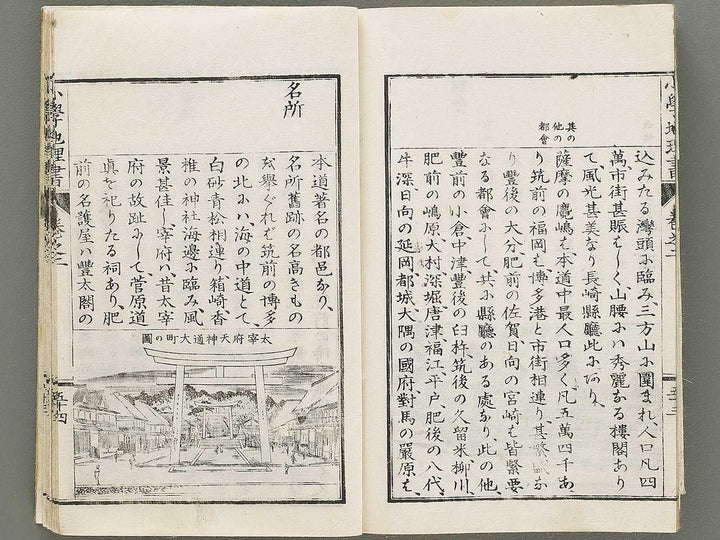 小學地理書
卷之二
五十三
込みたる灣頭に臨み、三方山に圍まれ、人口凡四
萬市街甚賑はしく、山腰には秀麗なる樓閣あり
て、風光甚美なり、長崎縣廳此にあり、
其の
他の
都會
薩摩の鹿嶋は、本道中最人口多く、凡五萬四千あ
り、筑前の福岡は、博多港と市街相連り、甚繁盛な
り、豐後の大分、肥前の佐賀、日向の宮崎は、皆緊要
なる都會にして、共に縣廳のある處なり、此の他、
豐前の小倉、中津、豐後の臼杵、筑後の久留米、柳川、
肥前の嶋原、大村、深堀、唐津、福江、平戸、肥後の八代、
牛深、日向の延岡、都城、大隅の國府、對馬の嚴原は、
本道著名の都邑なり、
名所
名所舊跡の名高きもの
を擧ぐれば、筑前の博多
の北には、海の中道とて、
白砂青松相連り、箱崎、香
椎の神社、海邊に臨み、風
景甚佳し、宰府は、昔太宰
府の故趾にして、菅原道
眞を祀りたる祠あり、肥
前の名護屋は、豐太閤の
太宰府天神通大町の圖
小學地理書
卷之二
五十四